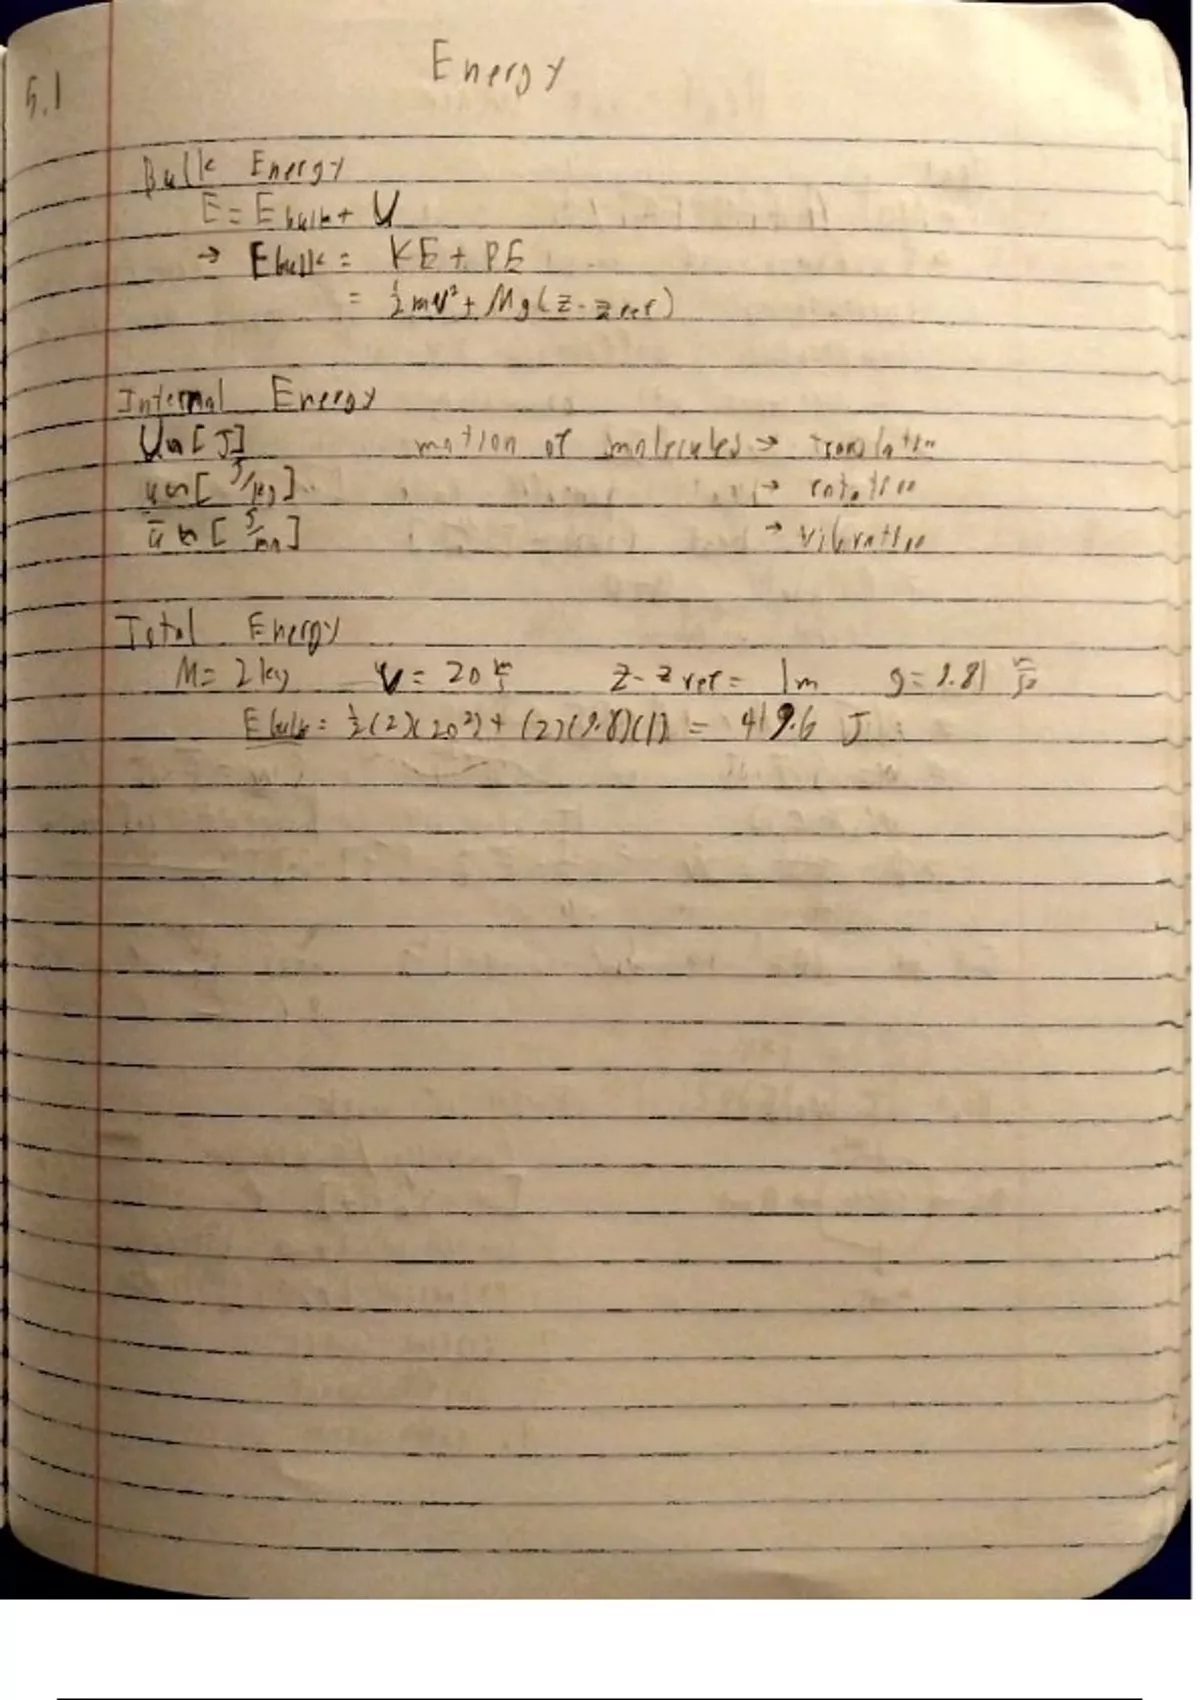 5.1
Energy
Bulk Energy
E = E bulk + U
→ E bulk = KE + PE
= ½ mv² + Mg(z - z ref)
Internal Energy
U [J] motion of molecules → translation
u [J/kg] → rotation
ū [J/mn] → vibration
Total Energy
M = 2 kg v = 20 m/s z - z ref = 1m g = 9.81 m/s²
E bulk = ½ (2)(20²) + (2)(9.8)(1) = 419.6 J